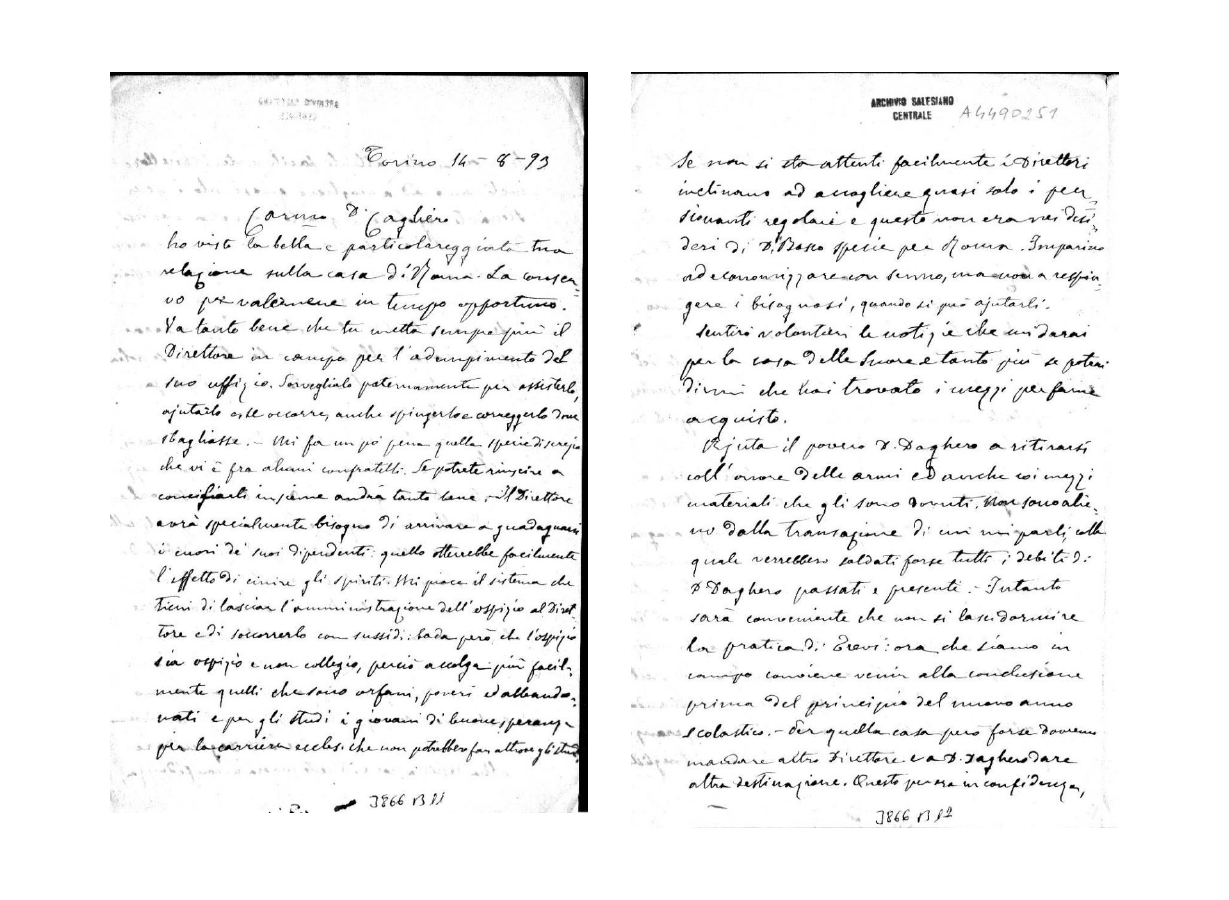 Torino 14-8-93
Car.mo D. Cagliero
ho visto la bella e particolareggiata tua
relazione sulla casa di Roma. La conser-
vo per valermene in tempo opportuno.
Va tanto bene che tu metta sempre più il
Direttore in campo per l'adempimento del
suo uffizio. Sorveglialo paternamente per assisterlo,
ajutarlo e se occorre, anche spingerlo e correggerlo dove
sbagliasse. - Mi fa un po' pena quella specie di screzio
che vi è fra alcuni confratelli. Se potrete riuscire a
conciliarli insieme andrà tanto bene. Il Direttore
avrà specialmente bisogno di arrivare a guadagnarsi
i cuori de' suoi dipendenti: quello otterrebbe facilmente
l'effetto di unire gli spiriti. Mi piace il sistema che
tieni di lasciar l'amministrazione dell'ospizio al Diret-
tore e di soccorrerlo con sussidi: bada però che l'ospizio
sia ospizio e non collegio, perciò accolga più facil-
mente quelli che sono orfani, poveri ed abbando-
nati e per gli studi i giovani di buone speranze
per la carriera eccles. che non potrebbero far altrove gli studi
3866 B11
ARCHIVIO SALESIANO
CENTRALE
A4490251
Se non si sta attenti facilmente i Direttori
inclinano ad accogliere quasi solo i pen-
sionanti regolari e questo non era nei desi-
deri di D. Bosco specie per Roma. Imparino
ad economizzare con senno, ma non a respin-
gere i bisognosi, quando si può ajutarli.
Sentirò volontieri le notizie che mi darai
per la casa delle Suore e tanto più se potrai
dirmi che hai trovato i mezzi per farne
acquisto.
Ajuta il povero D. Daghero a ritirarsi
coll'onore delle armi ed anche coi mezzi
materiali che gli sono dovuti. Non sono alie-
no dalla transazione di cui mi parli, colla
quale verrebbero saldati forse tutti i debiti di
D. Daghero passati e presenti. - Intanto
sarà conveniente che non si lasci dormire
la pratica di Trevi: ora che siamo in
campo conviene venir alla conclusione
prima del principio del nuovo anno
scolastico. - Per quella casa però forse dovremo
mandare altro Direttore e a D. Daghero dare
altra destinazione. Questo per ora in confidenza,
3866 B12